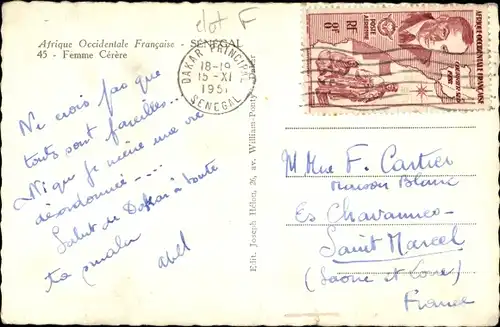 Afrique Occidentale Française - SENEGAL
45 - Femme Cérère
DAKAR PRINCIPAL
18-19
15-XI
1951
SENEGAL
POSTE AERIENNE
RF 8F
AFRIQUE OCCIDENTALE FRANÇAISE
Ne crois pas que
touts sont pareilles...
Ni que je mène une vie
désordonnée....
Salut de Dakar à toute
ta smala
Abel
Edit. Joseph Hélou, 26, av. William-Ponty, Dakar
M Mme F. Cartier
Maison Blanc
Es Chavannes
Saint Marcel
(Saone et Loire)
France